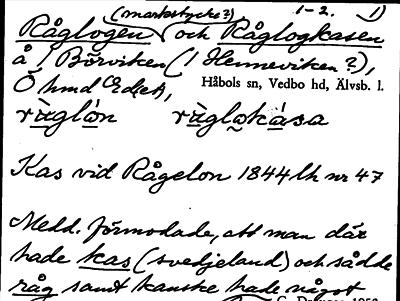 (markstycke?) 1-2. 1)
Råglogen och Råglogkasen
å / Börviken (/ Henneviken?),
Ö hmd Ed(et),
Håbols sn, Vedbo hd, Älvsb. l.
ràglón ràglokása
Kas vid Rågelon 1844 lh nr 47
Medd. förmodade, att man där
hade kas (svedjeland) och sådde
råg samt kanske hade något